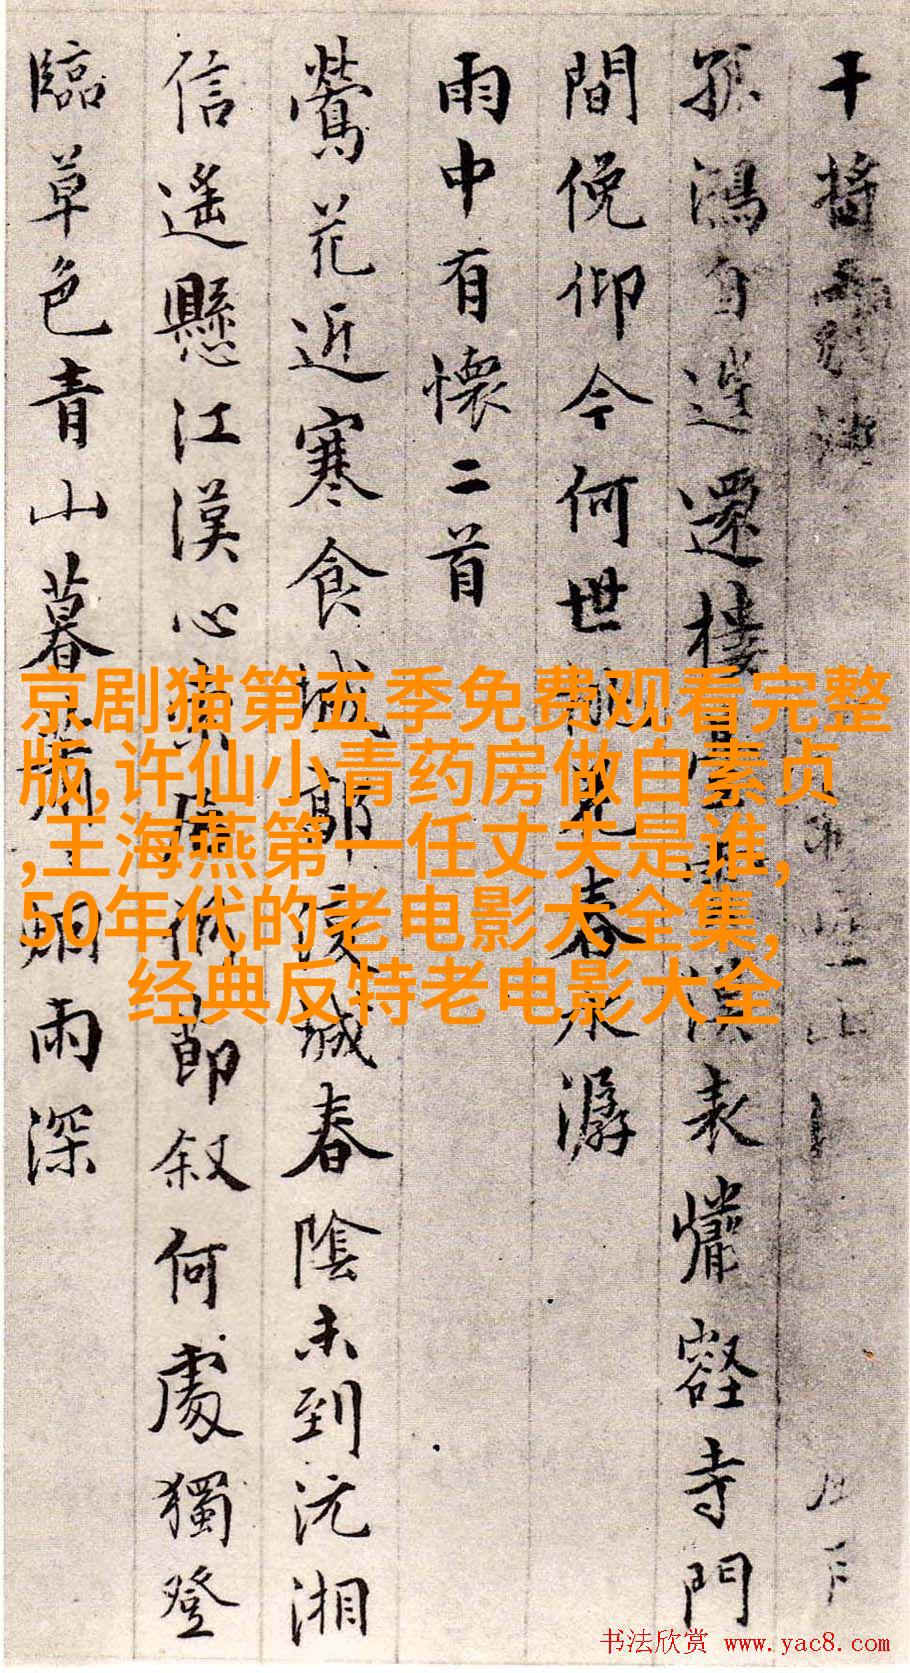 干將
孤鴻自還樓漢表壑寺門
間俛仰今何世春水潺
雨中有懷二首
鶯花近寒食城城春陰未到沅湘
信遙懸江漢心節叙何處獨登
臨草色青山暮烟雨深
京剧猫第五季免费观看完整
版,许仙小青药房做白素贞
,王海燕第一任丈夫是谁,
50年代的老电影大全集,
经典反特老电影大全
书法欣赏 www.yac8.com